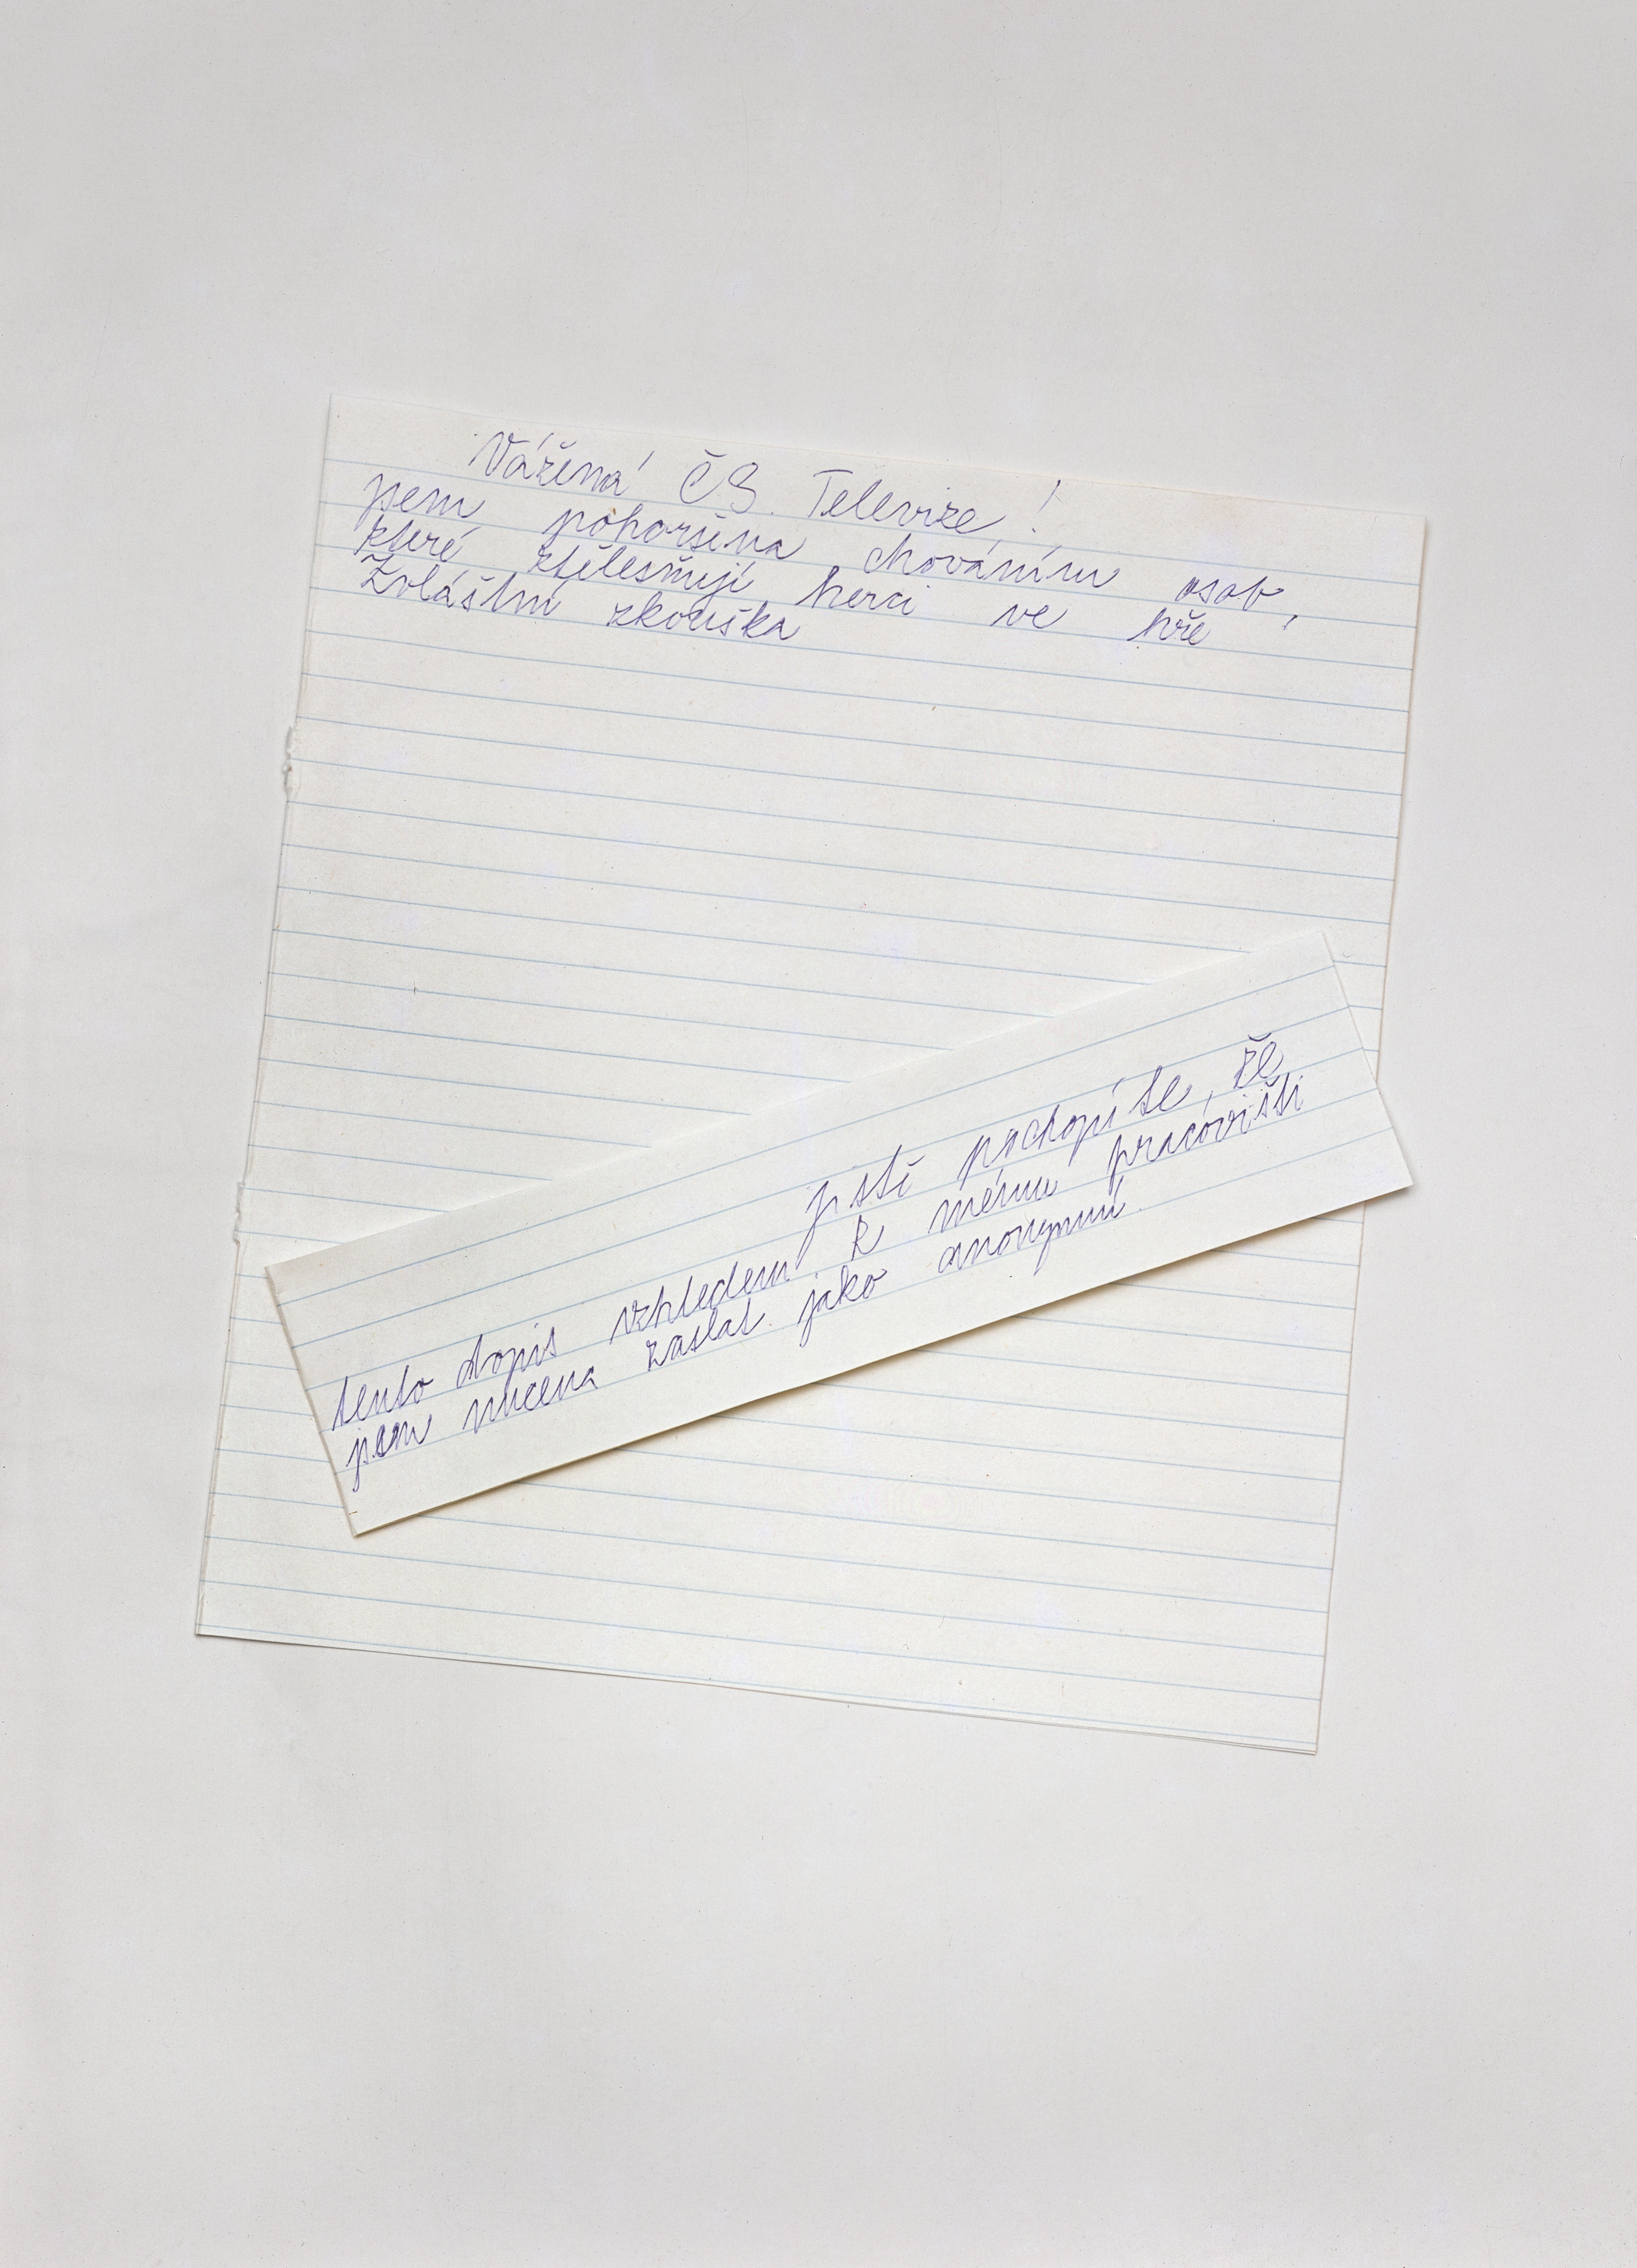 Vážená ČS. Televize!
jsem pohoršena chováním osob,
které ztělesňují herci ve hře
Zvláštní zkouška
jistě pochopíte, že
tento dopis vzhledem k mému pracovišti
jsem nucena zaslat jako anonymní.